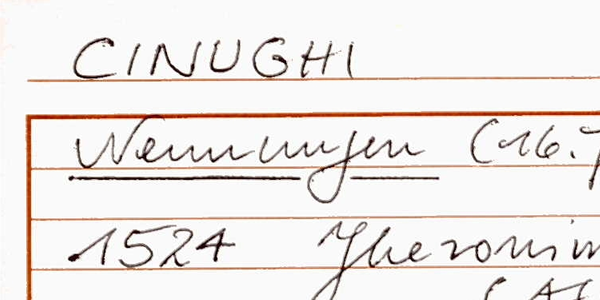 CINUGHI
Nennungen (16.
1524 Jheronim